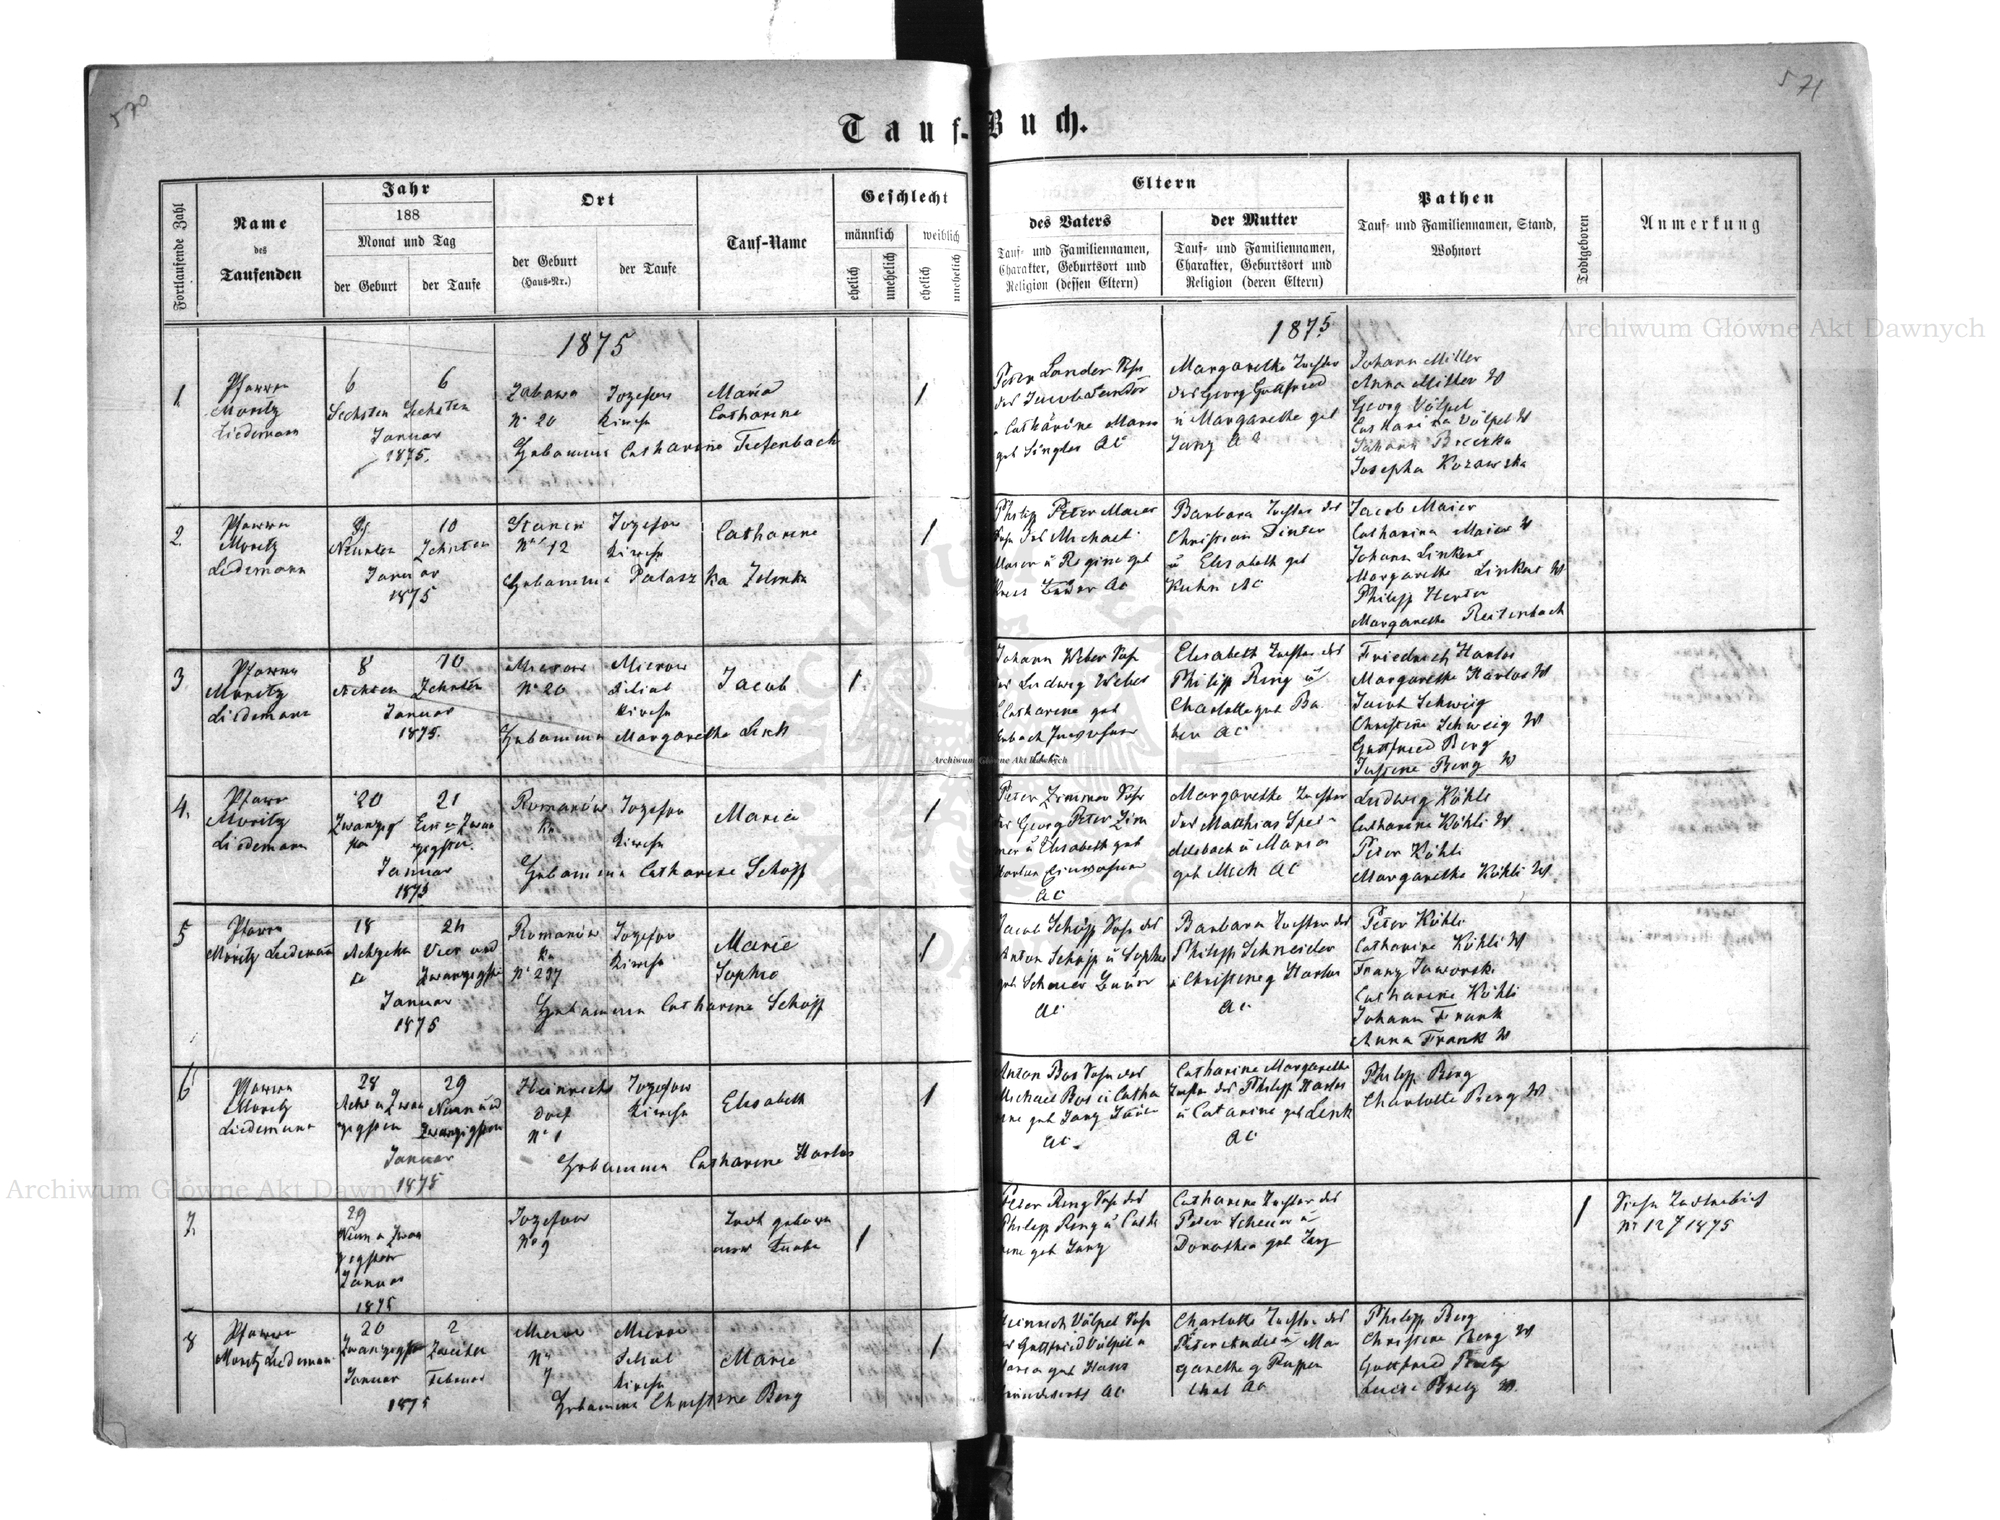 570
571
Tauf-Buch.
Fortlaufende Zahl
Name
des
Taufenden
Jahr
188
Monat und Tag
der Geburt
der Taufe
Ort
der Geburt
(Haus-Nr.)
der Taufe
Tauf-Name
Geschlecht
männlich
weiblich
ehelich
unehelich
ehelich
unehelich
Eltern
des Vaters
Tauf- und Familiennamen,
Charakter, Geburtsort und
Religion (dessen Eltern)
der Mutter
Tauf- und Familiennamen,
Charakter, Geburtsort und
Religion (deren Eltern)
Pathen
Tauf- und Familiennamen, Stand,
Wohnort
Todtgeboren
Anmerkung
1875
1875
1
Pfarrer
Moritz
Liedemann
6
Sechsten
6
Sechsten
Januar
1875.
Zabawa
No 20
Jozefow
Kirche
Maria
Catharine
1
Hebamme Catharine Tiefenbach
Peter Lander Sohn
des Jacob Lander
Margarethe Tochter
des Georg Gottfried
u Margarethe geb
Jung AC
Johann Miller
Anna Miller W
Georg Völpel
Catharina Völpel W
Josepha Kozawska
2.
Pfarrer
Moritz
Liedemann
Neunten
10
Zehnten
Januar
1875
Stanin
No 12
Jozefow
Kirche
Catharine
1
Hebamme
Philipp Peter Maier
Sohn des Michael
Maier u Regine geb
Barbara Tochter des
Christian Dinter
u Elisabeth geb
Kuhn AC
Jacob Maier
Catharina Maier W
Johann Linkert
Margarethe Linkert W
Philipp Herter
Margarethe Reitenbach
3
Pfarrer
Moritz
Liedemann
8
Achten
10
Zehnten
Januar
1875.
Mierow
No 20
Mierow
Filial
Kirche
Jacob
1.
Hebamme Margarethe Link
Johann Weber Sohn
des Ludwig Weber
Elisabeth Tochter des
Philipp Ring u
Charlotte geb Ba
ber AC
Friedrich Harlos
Margarethe Harlos W
Jacob Schweig
Christine Schweig W
Gottfried Berg
Justine Berg W
4.
Pfarrer
Moritz
Liedemann
20
Zwanzig
sten
21
Ein u Zwan
zigsten.
Januar
1875
Romanówka
Jozefow
Kirche
Maria
1
Hebamme Catharine Schöpp
Peter Zimmer Sohn
des Georg Peter Zim
mer u Elisabeth geb
AC
Margarethe Tochter
des Matthias Spei
delsbach u Maria
geb Mich AC
Ludwig Köhli
Catharine Köhli W
Peter Köhli
Margarethe Köhli W
5
Pfarrer
Moritz Liedemann
18
Achzehn
te
24
Vier und
Zwanzigsten
Januar
1875
Romanówka
No 237
Jozefow
Kirche
Marie
Sophie
1
Hebamme Catharine Schöpp
Jacob Schöpp Sohn des
Anton Schöpp u Sophie
geb Scheuer Bauer
AC
Barbara Tochter des
Philipp Schneider
u Christine g Harlos
AC
Peter Köhli
Catharine Köhli W
Franz Jaworski
Catharine Köhli
Johann Frank
Anna Frank W
6
Pfarrer
Moritz
Liedemann
28
Acht u Zwan
zigsten
29
Neun und
Zwanzigsten
Januar
1875
Heinrichs
dorf
No 1
Jozefow
Kirche
Elisabeth
1
Hebamme Catharine Harlos
Anton Bos Sohn des
Michael Bos u Catha
rine geb Jung
AC
Catharine Margarethe
Tochter des Philipp Harlos
u Catarina geb Link
AC
Philipp Berg
Charlotte Berg W
7.
29
Neun u Zwan
zigsten
Januar
1875
Jozefow
No 9
Todt gebore
ner Knabe
1
Peter Ring Sohn des
Philipp Ring u Catha
rine geb Jung
Catharine Tochter des
Peter Scheuer u
Dorothea geb Jung
1
Siehe Todtenbuch
No 127 1875
8
Pfarrer
Moritz Liedemann
20
Zwanzigsten
Januar
2
Zweiten
Februar
1875
Mierow
No
7
Mierow
Filial
Kirche
Marie
1
Hebamme Christine Berg
Heinrich Völpel Sohn
des Gottfried Völpel u
Maria geb Haus
Charlotte Tochter des
Peter Andre u Mar
garethe g Ruppen
thal AC
Philipp Berg
Christine Berg W
Gottfried Bretz
Luise Bretz W.
Archiwum Główne Akt Dawnych
Archiwum Główne Akt Dawnych
Archiwum Główne Akt Dawnych